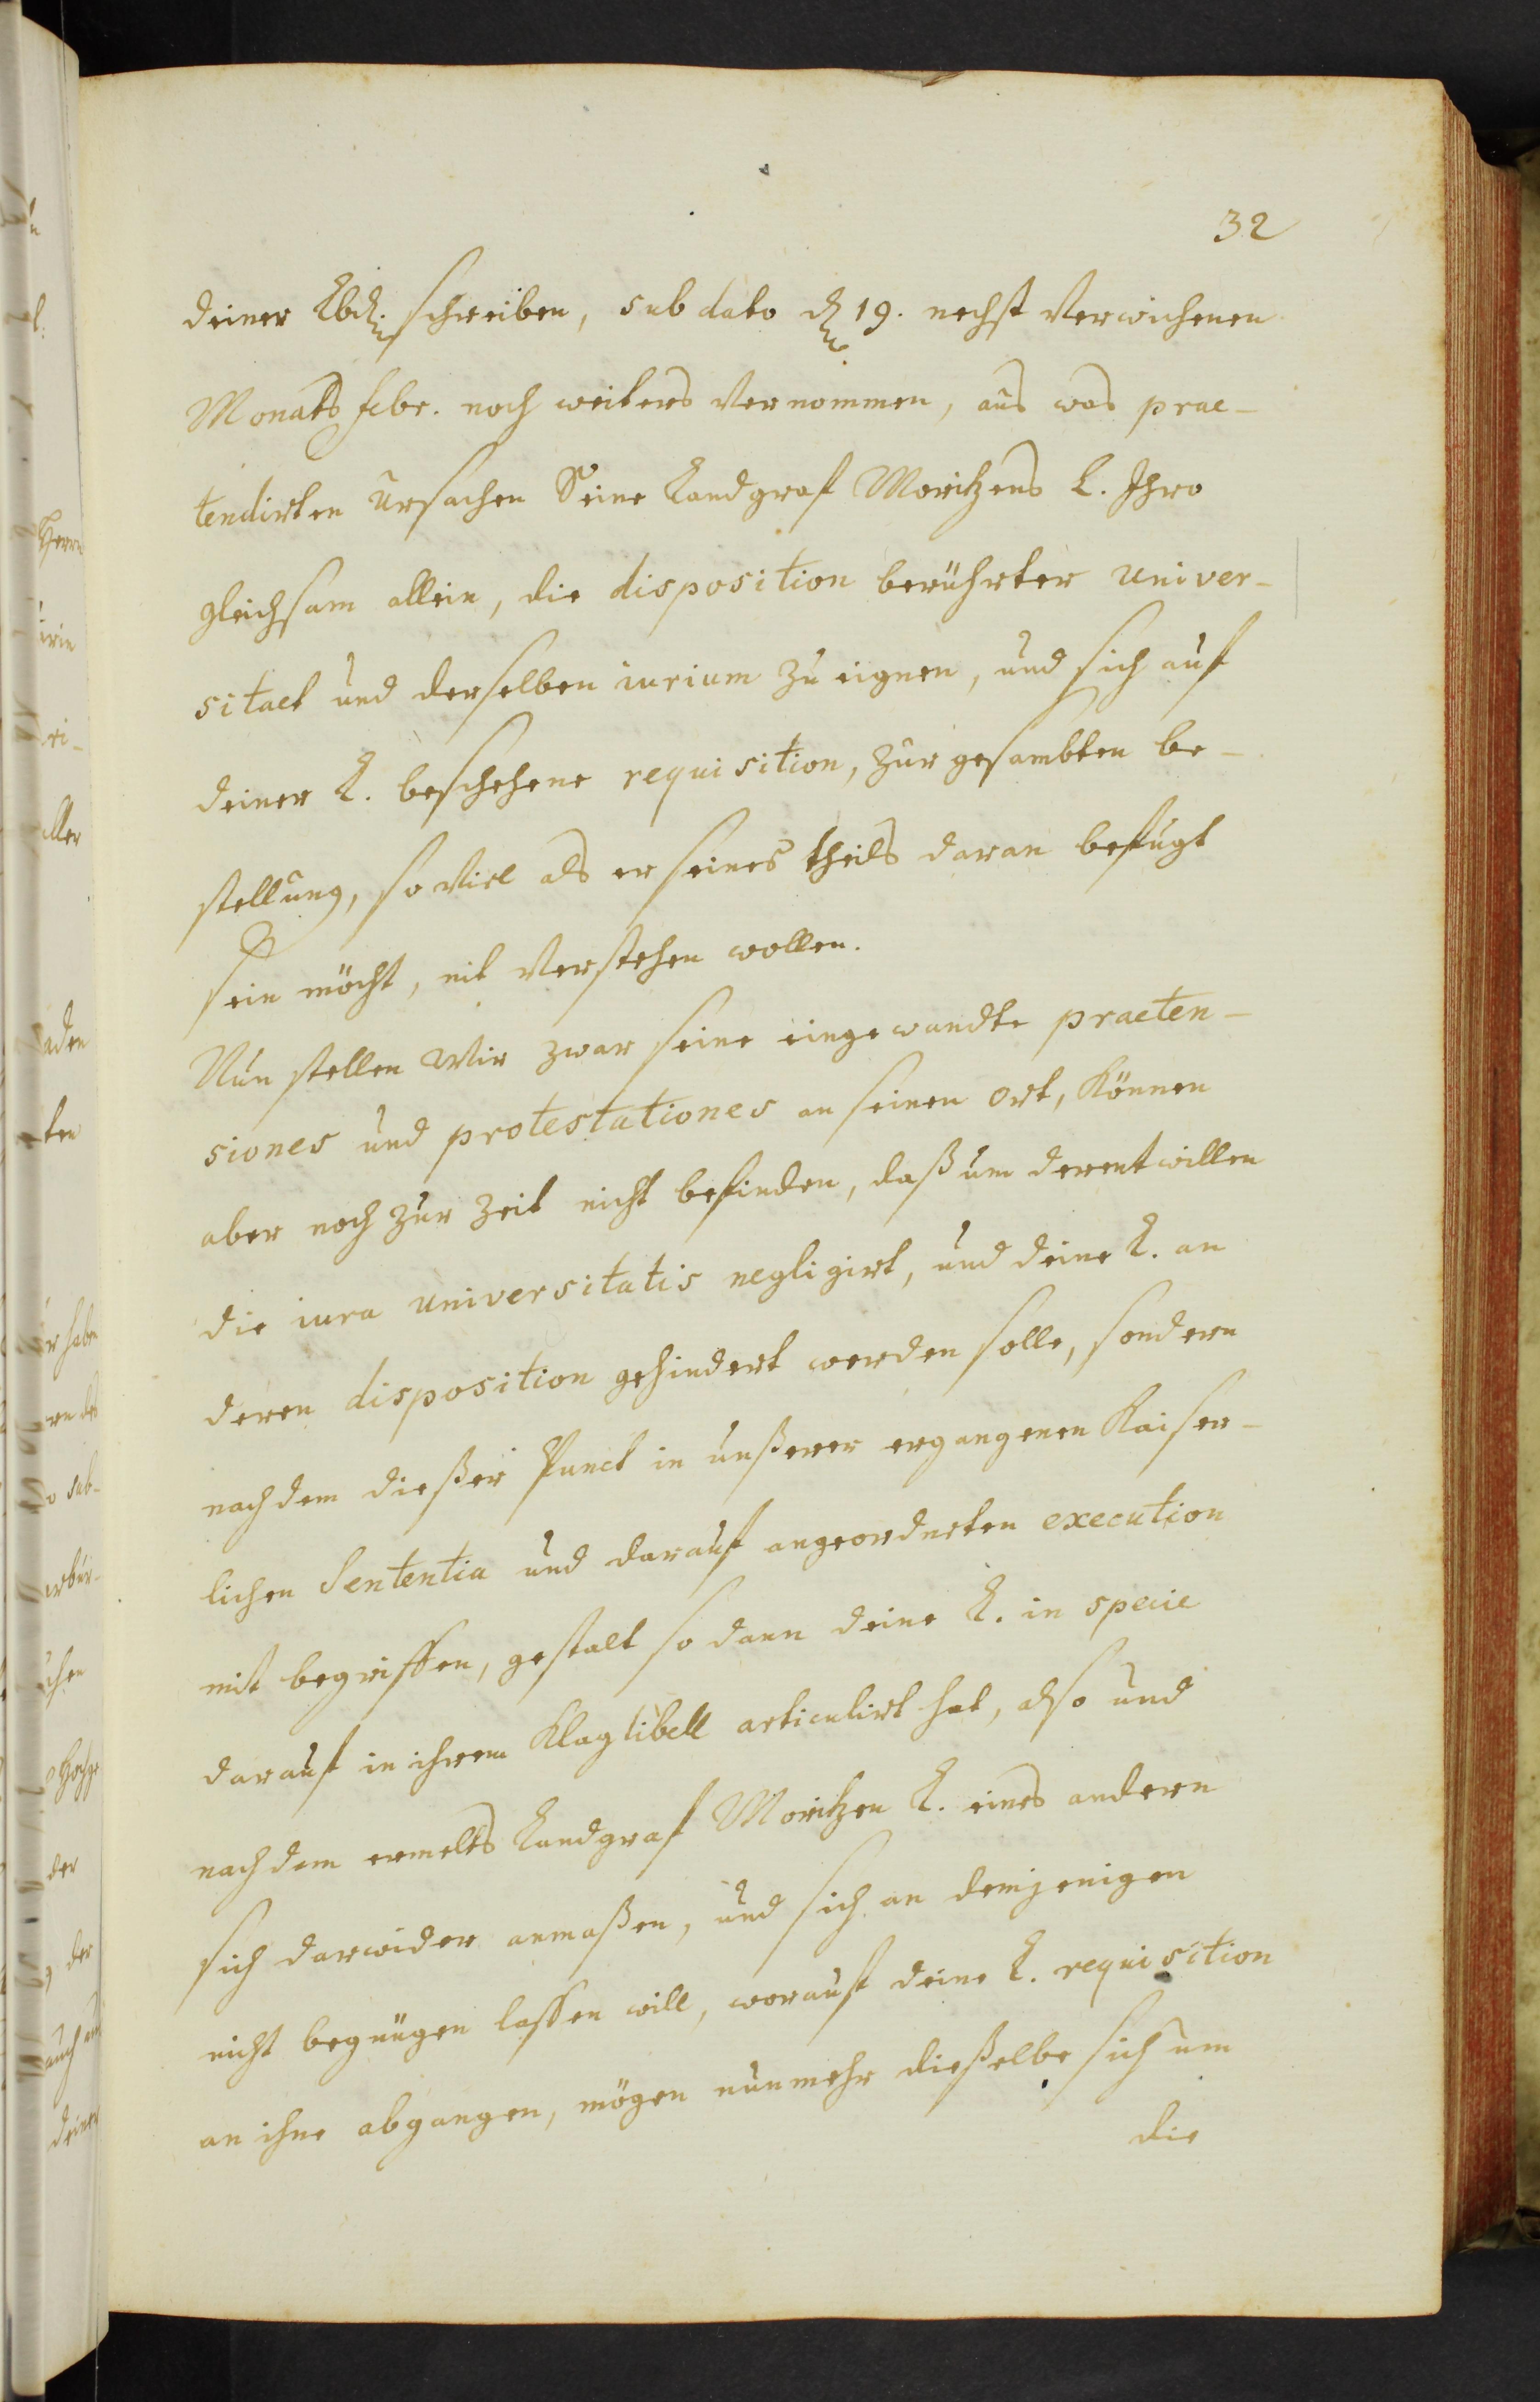 32
deiner Lbd. schreiben, sub dato den 19. nechst Verwichenen
Monats febr. noch weiters Vernommen, aus was prae-
tendirten Ursachen Seine Landgraf Moritzens L. Ihro
gleichsam allein, die disposition berührter univer-
sitaet und derselben iurium zu eignen, und sich auf
deiner L. beschehene requisition, zur gesambten be-
stellung, so Viel als er seines theils daran befugt
sein möcht, nit Verstehen wollen.
Nun stellen Wir zwar seine eingewandte praeten-
siones und protestationes an seinen ort, können
aber noch zur Zeit nicht befinden, daß um derentwillen
die iura universitatis negligirt, und deine L. an
deren disposition gehindert werden solle, sondern
nach dem dießer Punct in unßerer ergangenen Kaiser-
lichen Sententia und darauf angeordneten execution
mit begriffen, gestalt so dann deine L. in specie
darauf in ihrem Klaglibell articulirt hat, also und
nach dem ermelts Landgraf Moritzen L. eines andern
sich darwider anmaßen, und sich an demjenigen
nicht begnügen lassen will, worauf deine L. requisition
an ihne abgangen, mögen nunmehr dieselbe sich um
die